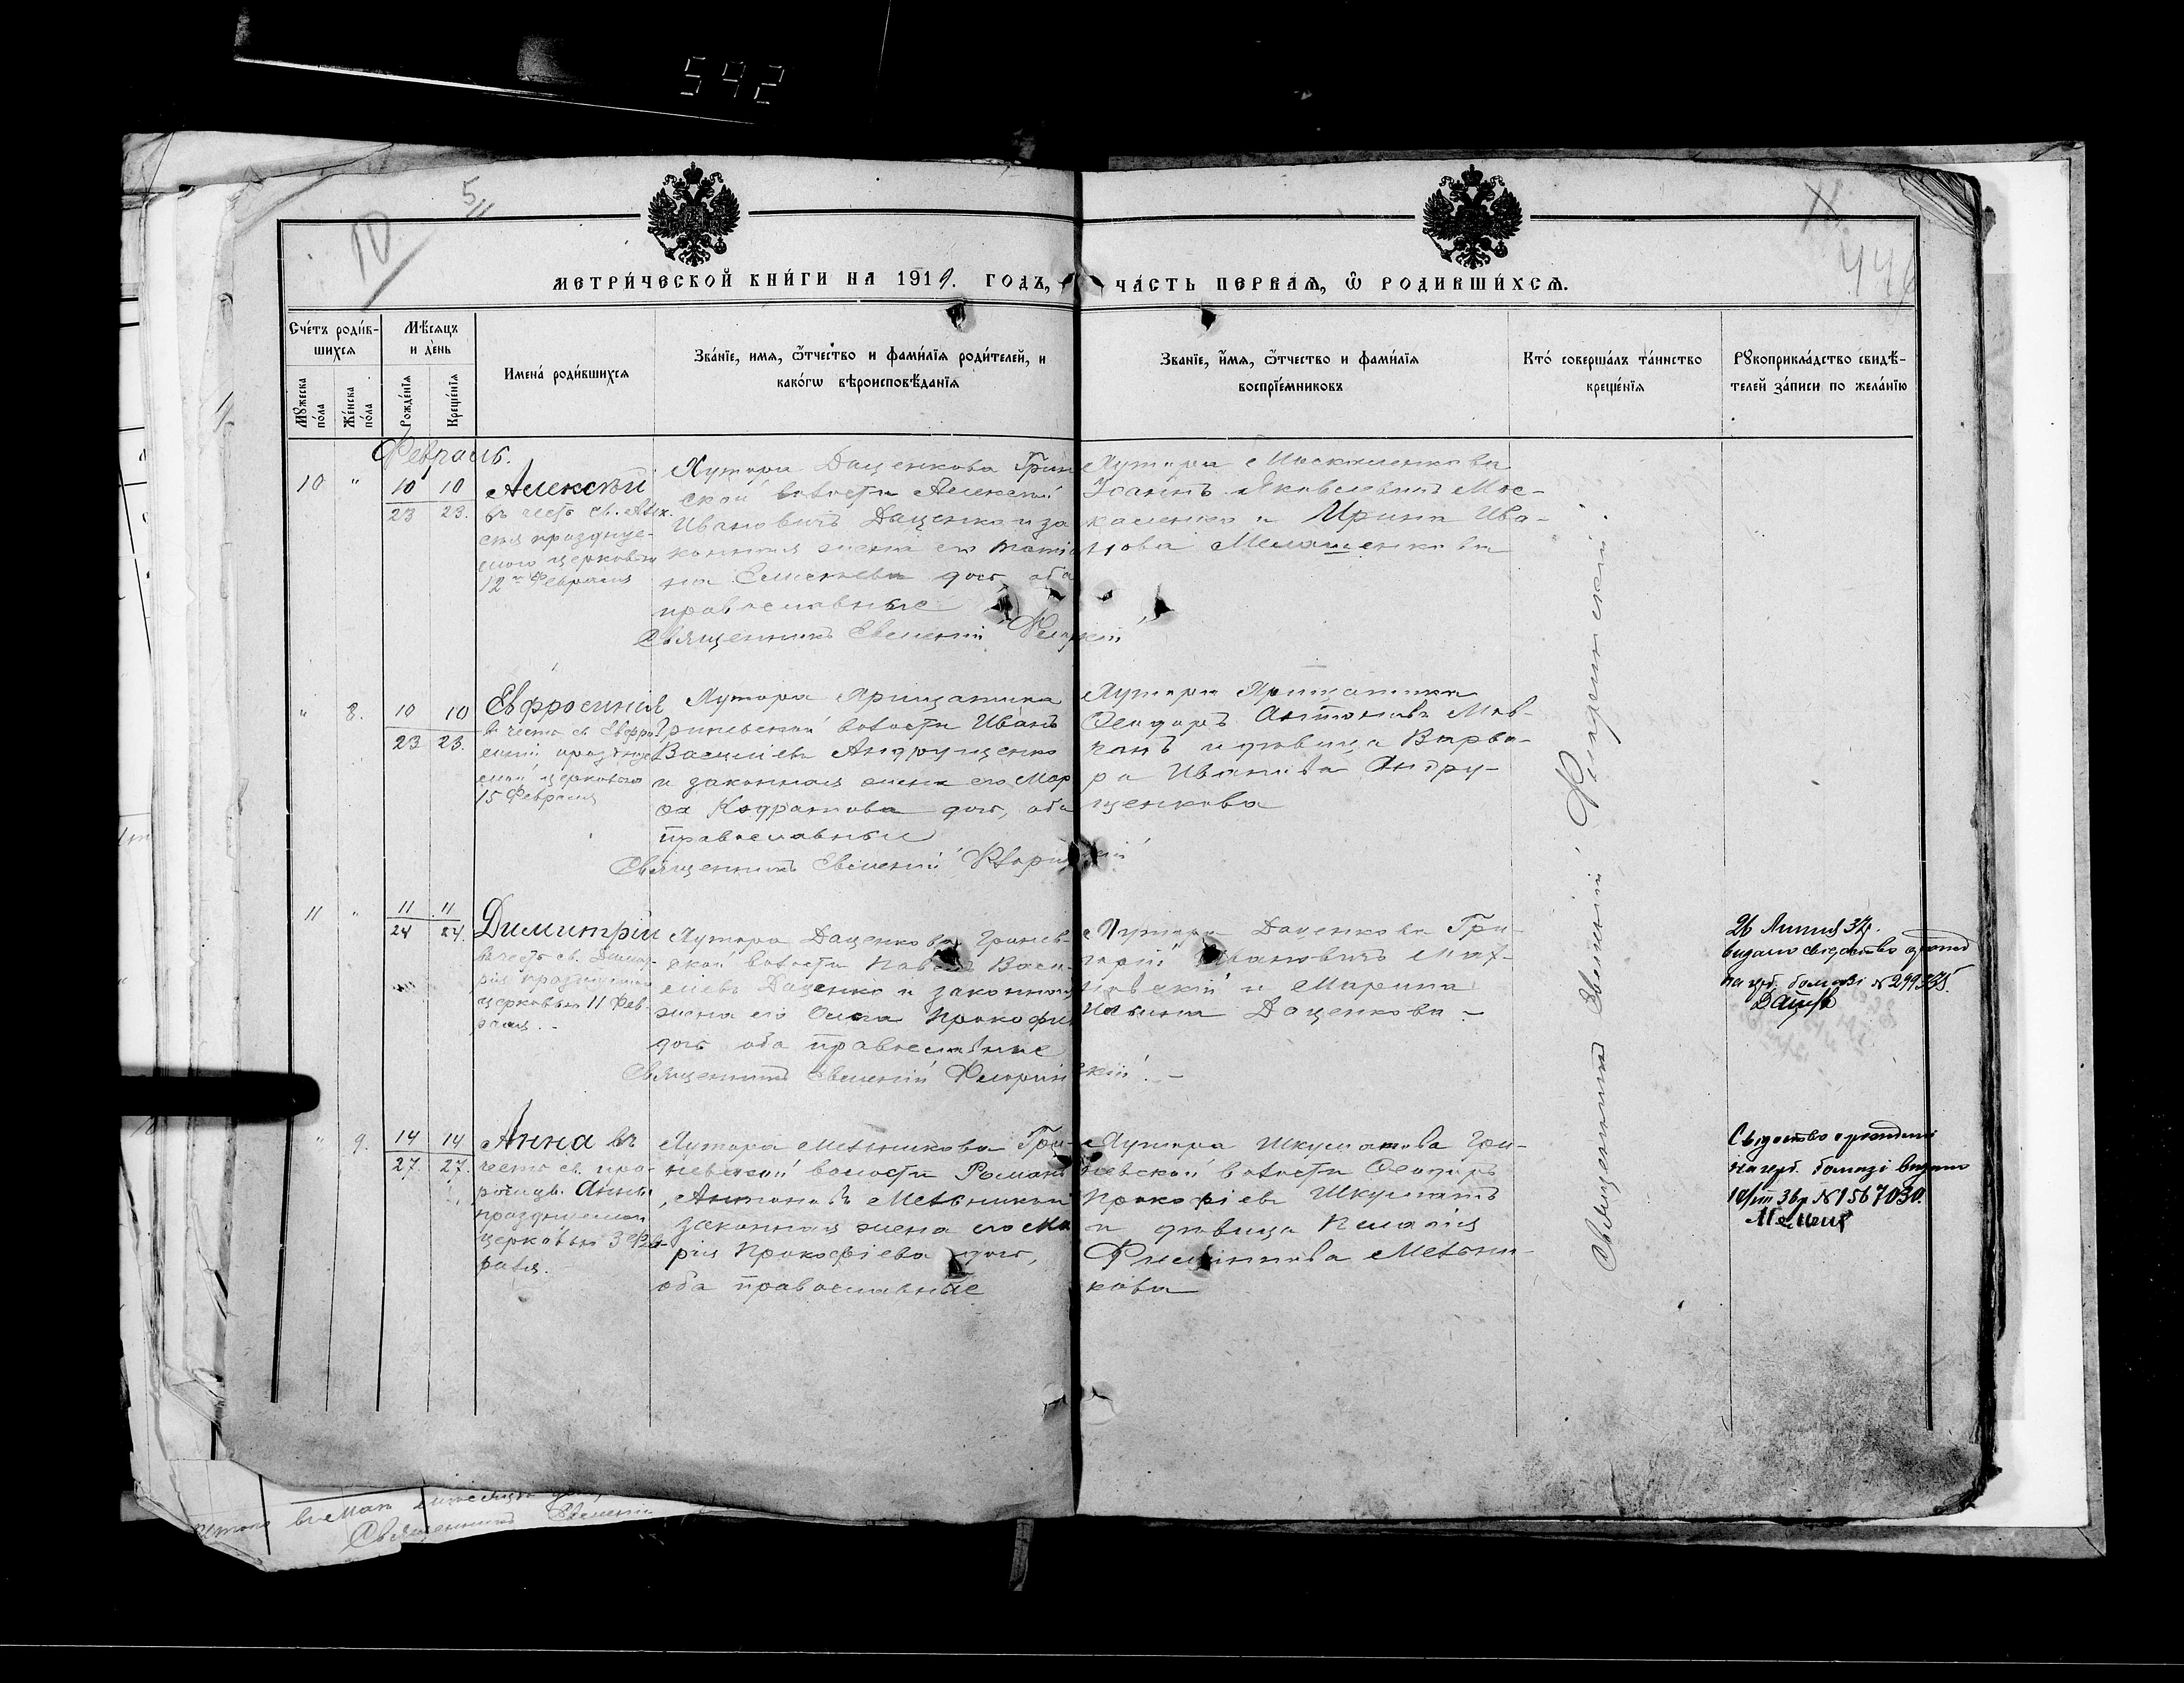 542
10
5/11
МЕТРИ́ЧЕСКОЙ КНИ́ГИ НА 1919. ГОДЪ,
ЧА́СТЬ ПЕРВАЯ, Ѡ РОДИВШИ́ХСѦ.
Сче́тъ роди́в-
шихся
Мѣсяцъ
и де́нь
Имена́ роди́вшихся
Зва́нїе, имя, ѻтчество и фами́лїя роди́телей, и
како́гѡ вѣроисповѣ́данїя
Зва́нїе, и́мя, ѻтчество и фами́лїя
воспрїе́мниковъ
Кто́ соверша́лъ та́инство
креще́нїя
Рꙋкоприкла́дство свидѣ́-
телей за́писи по жела́нїю
Мꙋжеска
по́ла
Же́нска
по́ла
Рожде́нїя
Креще́нїя
Февраль.
10 " 10/23 10/23.
Алексѣй
въ честь св. Алек-
сія праздnуе-
мого церковью
12го Февраля
Хутора Даценкова Грин
ской волости Алексѣй
Ивановичъ Даценко и за
конная жена его Тати
на Семенева доч, оба
православные
Священникъ Евгеній
Хутора Москаленкова
Іоаннъ Яковлевичъ Мос-
каленко и Ирина Ива-
нова Мелашенкова
" 8. 10/23 10/23.
Евфросинія
въ честь св. Евфро
синіи празднуе
мой церковью
15 Февраля
Хутора Ярищатика
волости Иванъ
Васильевъ Андрущенко
и законная жена его Мар
ѳа Кодратова доч, оба
православные
Священникъ Евгеній
Хутора Ярищатика
Ѳеодоръ Антоновъ Мов-
чанъ и дѣвица Варва-
ра Иванова Андру-
щенкова
11 " 11/24 11/24.
Димитрій
въ честь св. Димит-
рія празднуемого
церковью 11 Фев-
раля.
Хутора Даценкова Гринев-
ской волости Павелъ Васи-
льевъ Даценко и законная
жена его Ольга Прокофіе
доч оба православные
Священникъ Евгеній Флоринскій. –
Хутора Даценкова Гри-
горій Ивановичъ Мах-
новскій и Марина
Ильина Даценкова –
26 Липня 37р.
видано свідоцтво
на гер. бомазі № 299325.
" 9. 14/27. 14/27.
Анна въ
честь св. про-
рочицы Анны
празднуемой
церковью 3 Фев-
раля.
Хутора Мельникова Гри-
невской волости Романъ
Антоновъ Мельникъ и
законная жена его Ма
рія Прокофіева доч,
оба православные
Хутора Шкурматова Гри-
невской волости Ѳеодоръ
Прокофіевъ Шкурматъ
и дѣвица Пелагія
Филиппова Мельни-
кова
Свідоцтво о рожденні
на герб. бомазі видано
36р № 1567030.
Священникъ Евгеній Флоринскій.
Священникъ Евгеній